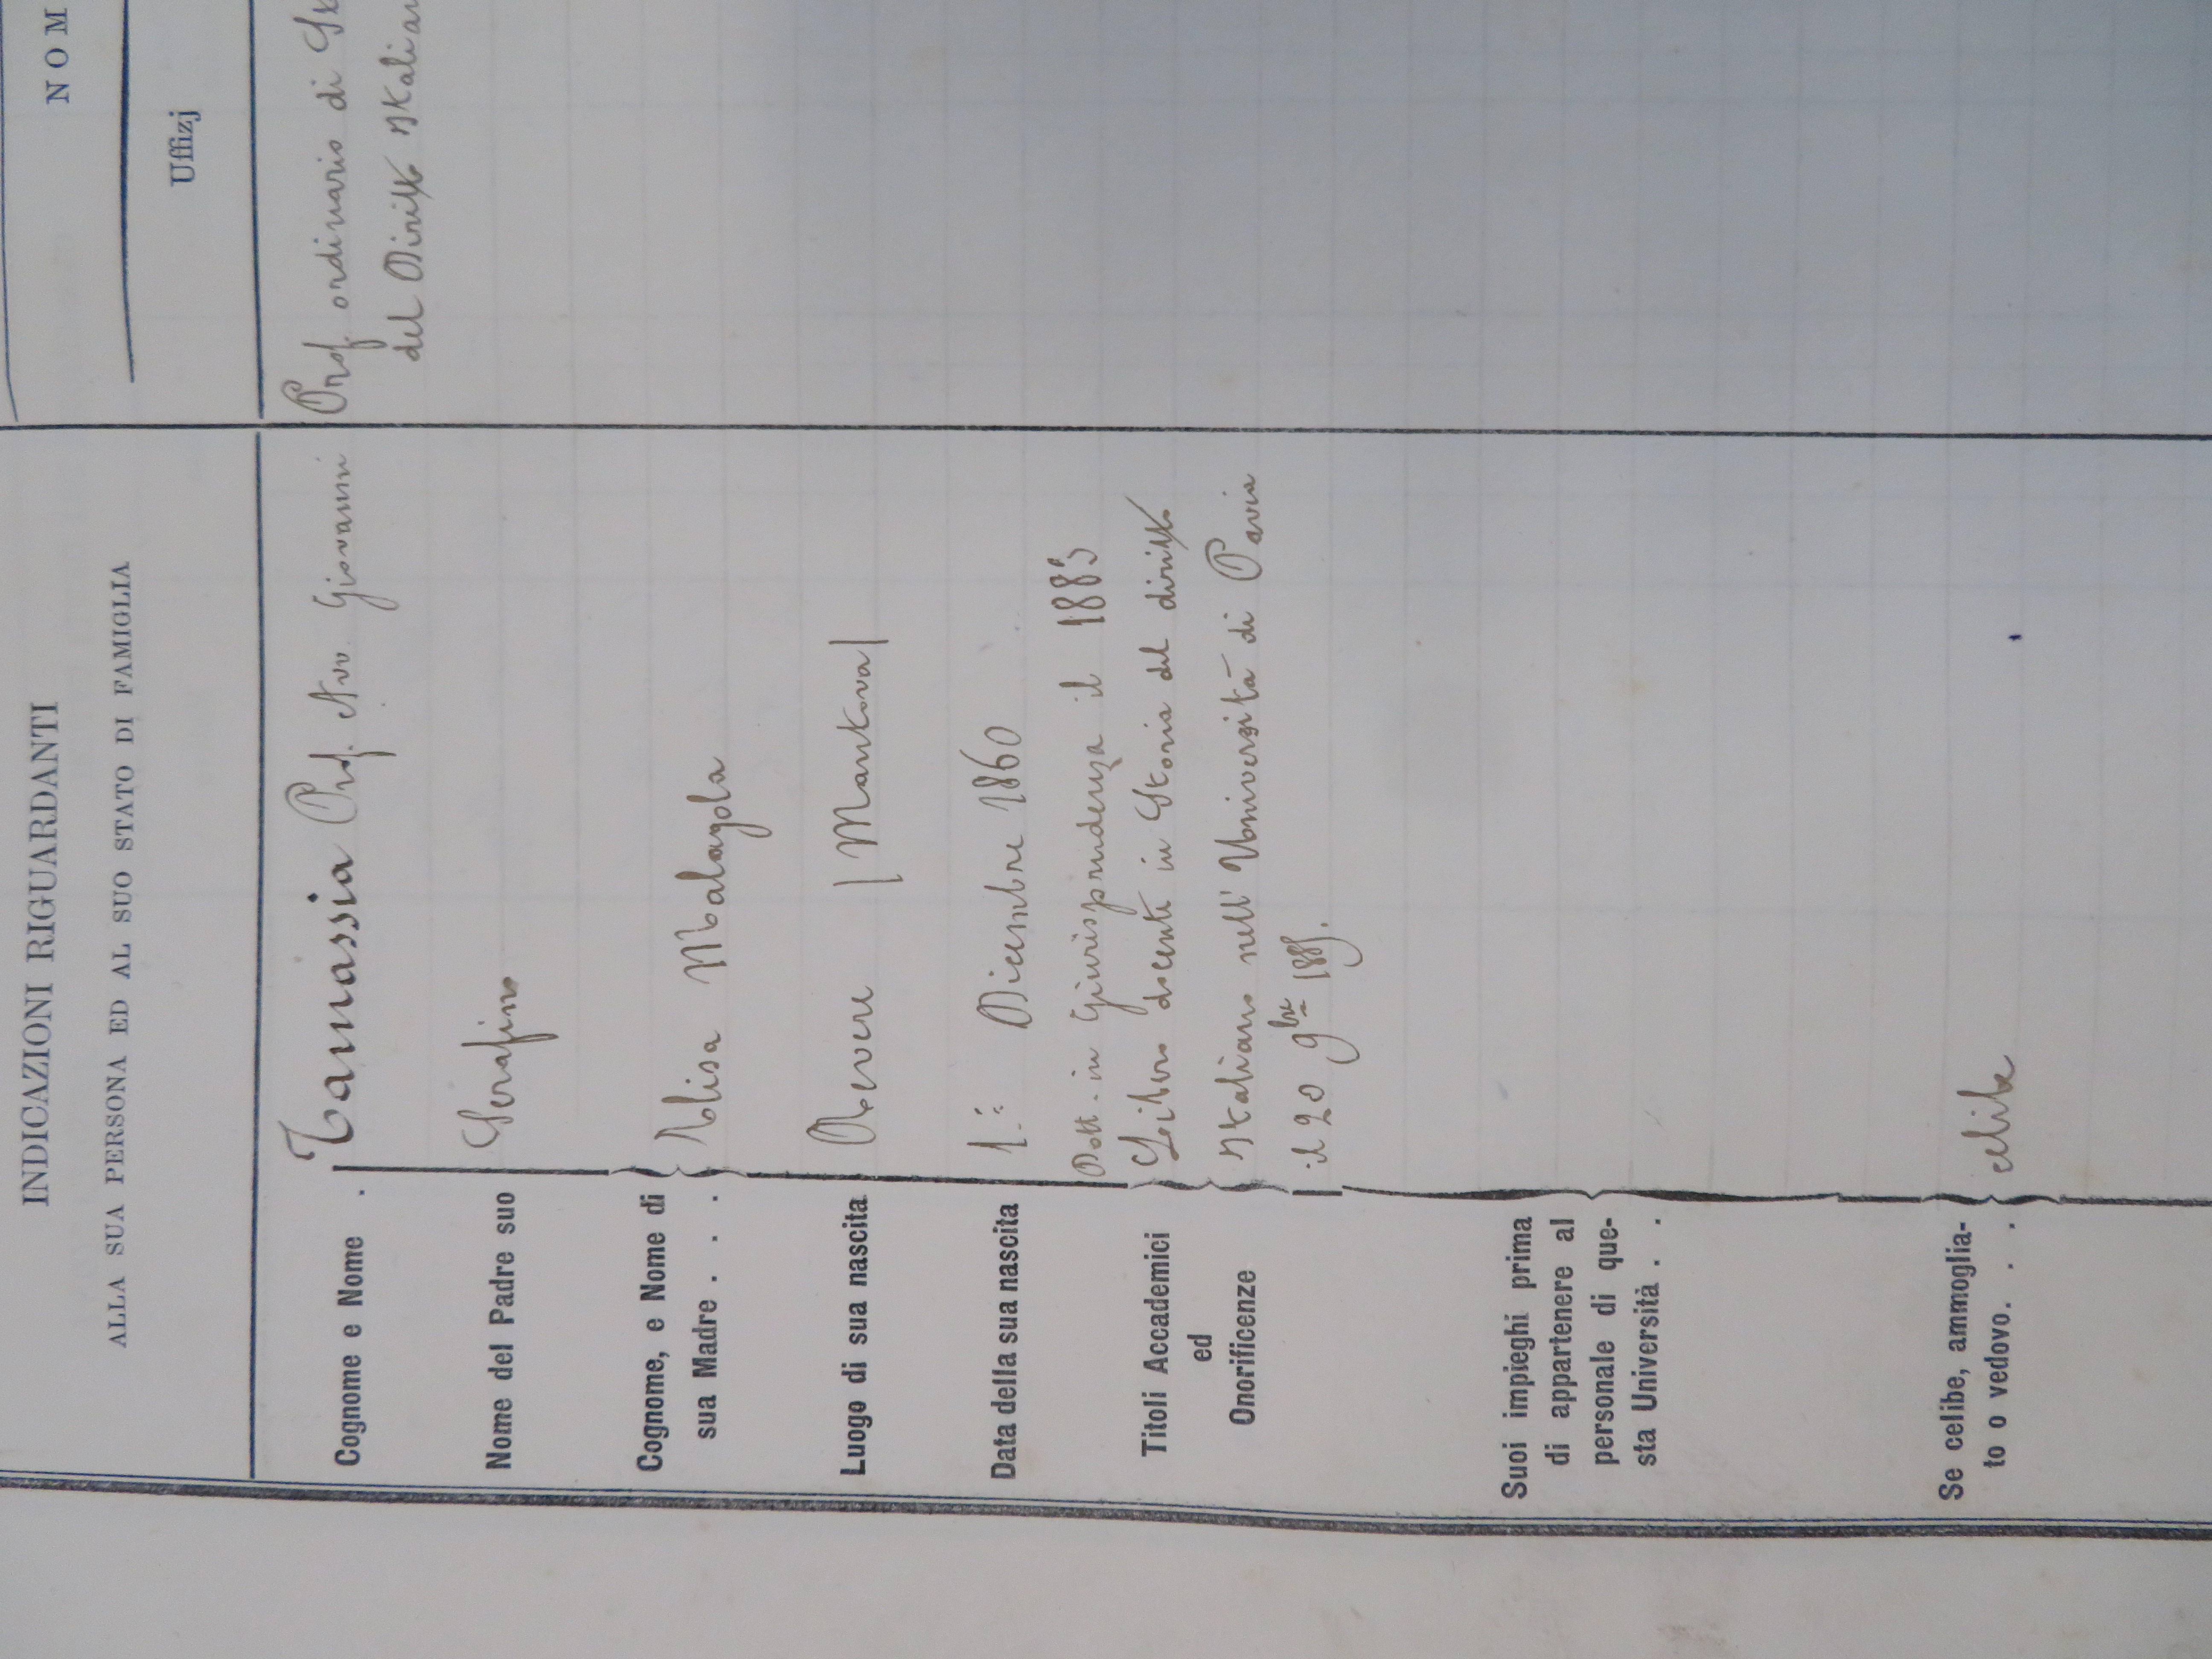 INDICAZIONI RIGUARDANTI
ALLA SUA PERSONA ED AL SUO STATO DI FAMIGLIA
Cognome e Nome . Tamassia Prof. Avv. Giovanni
Nome del Padre suo Serafino
Cognome, e Nome di
sua Madre . . . . Elisa Malagola
Luogo di sua nascita Revere (Mantova)
Data della sua nascita 1.° Dicembre 1860
Titoli Accademici
ed
Onorificenze
Dott. in Giurisprudenza il 1883
Libero docente in Storia del diritto
Italiano nell' Università di Pavia
il 20 9bre 1885.
Suoi impieghi prima
di appartenere al
personale di que-
sta Università . .
Se celibe, ammoglia-
to o vedovo. . . celibe
NOM
Uffizj
Prof. ordinario di St
del Diritto Italian